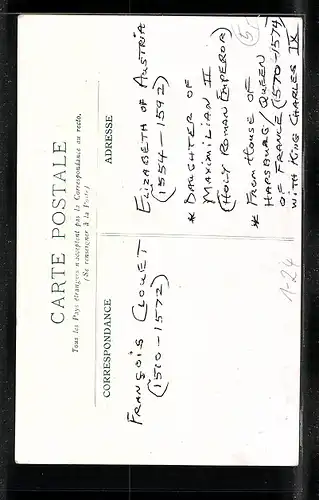 CARTE POSTALE
Tous les Pays étrangers n'acceptent pas la Correspondance au recto.
(Se renseigner à la Poste)
CORRESPONDANCE
ADRESSE
FRANÇOIS CLOUET
(1510-1572)
ELIZABETH OF AUSTRIA
(1554-1592)
* DAUGHTER OF
MAXIMILIAN II
(HOLY ROMAN EMPEROR)
* FROM HOUSE OF
HABSBURG/QUEEN
OF FRANCE (1570-1574)
WITH KING CHARLES IX
1-24